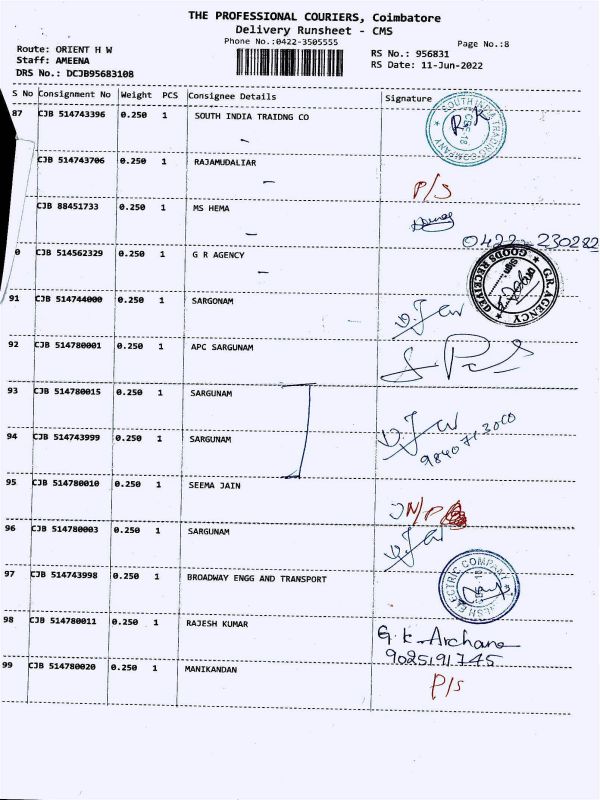 THE PROFESSIONAL COURIERS, Coimbatore
Delivery Runsheet - CMS
Phone No.:0422-3505555
Page No.:8
Route: ORIENT H W
Staff: AMEENA
DRS No.: DCJB95683108
RS No.: 956831
RS Date: 11-Jun-2022
S No Consignment No Weight PCS Consignee Details Signature
87 CJB 514743396 0.250 1 SOUTH INDIA TRAIDNG CO
SOUTH INDIA TRADING COMPANY CBE-18 R K
CJB 514743706 0.250 1 RAJAMUDALIAR P/S
CJB 88451733 0.250 1 MS HEMA
0422-230282
0 CJB 514562329 0.250 1 G R AGENCY
G.R. AGENCY GOODS RECEIVED
91 CJB 514744000 0.250 1 SARGONAM
92 CJB 514780001 0.250 1 APC SARGUNAM
93 CJB 514780015 0.250 1 SARGUNAM
94 CJB 514743999 0.250 1 SARGUNAM
95 CJB 514780010 0.250 1 SEEMA JAIN N/P
96 CJB 514780003 0.250 1 SARGUNAM
97 CJB 514743998 0.250 1 BROADWAY ENGG AND TRANSPORT
ELECTRIC COMPANY
98 CJB 514780011 0.250 1 RAJESH KUMAR G.K-Archana
9025191745
99 CJB 514780020 0.250 1 MANIKANDAN P/S